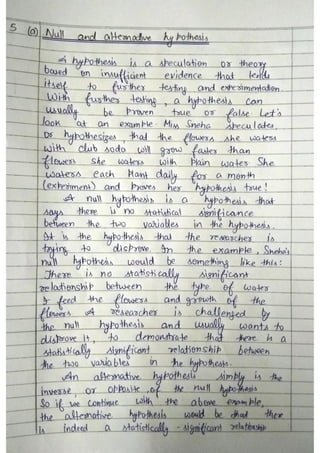 5 (a) Null and alternative hypothesis
A hypothesis is a speculation or theory
based on insufficient evidence that lends
itself to further testing and experimentation.
With further testing, a hypothesis can
usually be proven true or false Let's
look at an example. Miss Sneha speculates,
Or hypothesizes that the flowers she waters
with club soda will grow faster than
flowers she waters with Plain water She
waters each Plant daily for a month
(experiment) and proves her hypothesis true!
A null hypothesis is a hypothesis that
says there is no statistical significance
between the two variables in the hypothesis.
It is the hypothesis that the researcher is
trying to disprove. In the example, Sneha's
null hypothesis would be something like this:
There is no statistically significant
relationship between the type of water
I feed the flowers and growth of the
flowers A researcher is challenged by
the null hypothesis and usually wants to
disprove it, to demonstrate that there is a
statistically significant relationship between
the two variables in the hypothesis.
An alternative hypothesis simply is the
inverse, or opposite of the null hypothesis
So if we continue with the above example,
the alternative hypothesis would be that there
is indeed a statistically-significant relationship